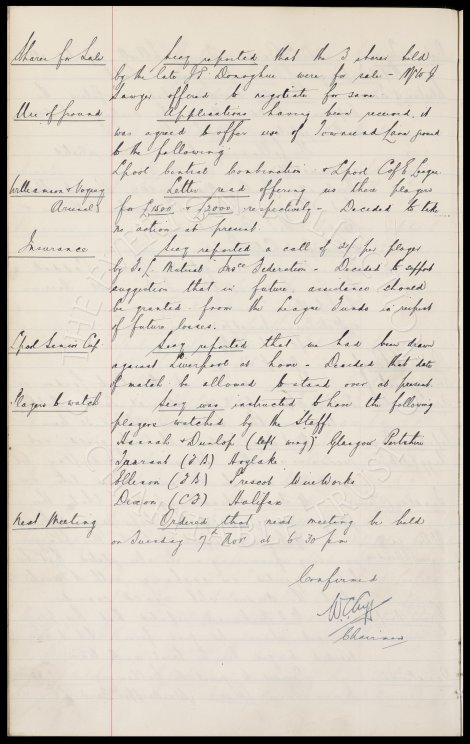 Shares for Sale
Secy reported that the 3 shares held
by the late J E Donoghue were for sale - Mr W J
Sawyer offered to negotiate for same
Use of Ground
Applications having been received it
was agreed to offer use of Townsend Lane ground
to the following
Lpool Central Combination & Lpool C of E League.
Williamson & Voysey
Arsenal
Letter read offering us these players
for £1500 & £2000 respectively - Decided to take
no action at present
Insurance
Secy reported a call of per player
by F. L. Mutual Insce Federation - Decided to support
suggestion that in future, assistance should
be granted from the League Funds in respect
of future losses.
Lpool Senior Cup
Secy reported that we had been drawn
against Liverpool at home - Decided that date
of match be allowed to stand over at present
Players to watch
Secy was instructed to have the following
players watched by the Staff.
Hannah & Dunlop (left wing) Glasgow Perthshire
Tarrant Hoylake
Ellison Prescot Wire Works
Dixon Halifax
Next Meeting
Ordered that next meeting be held
on Tuesday 7th Nov at 6 30 pm
Confirmed
W. C. Cuff
Chairman